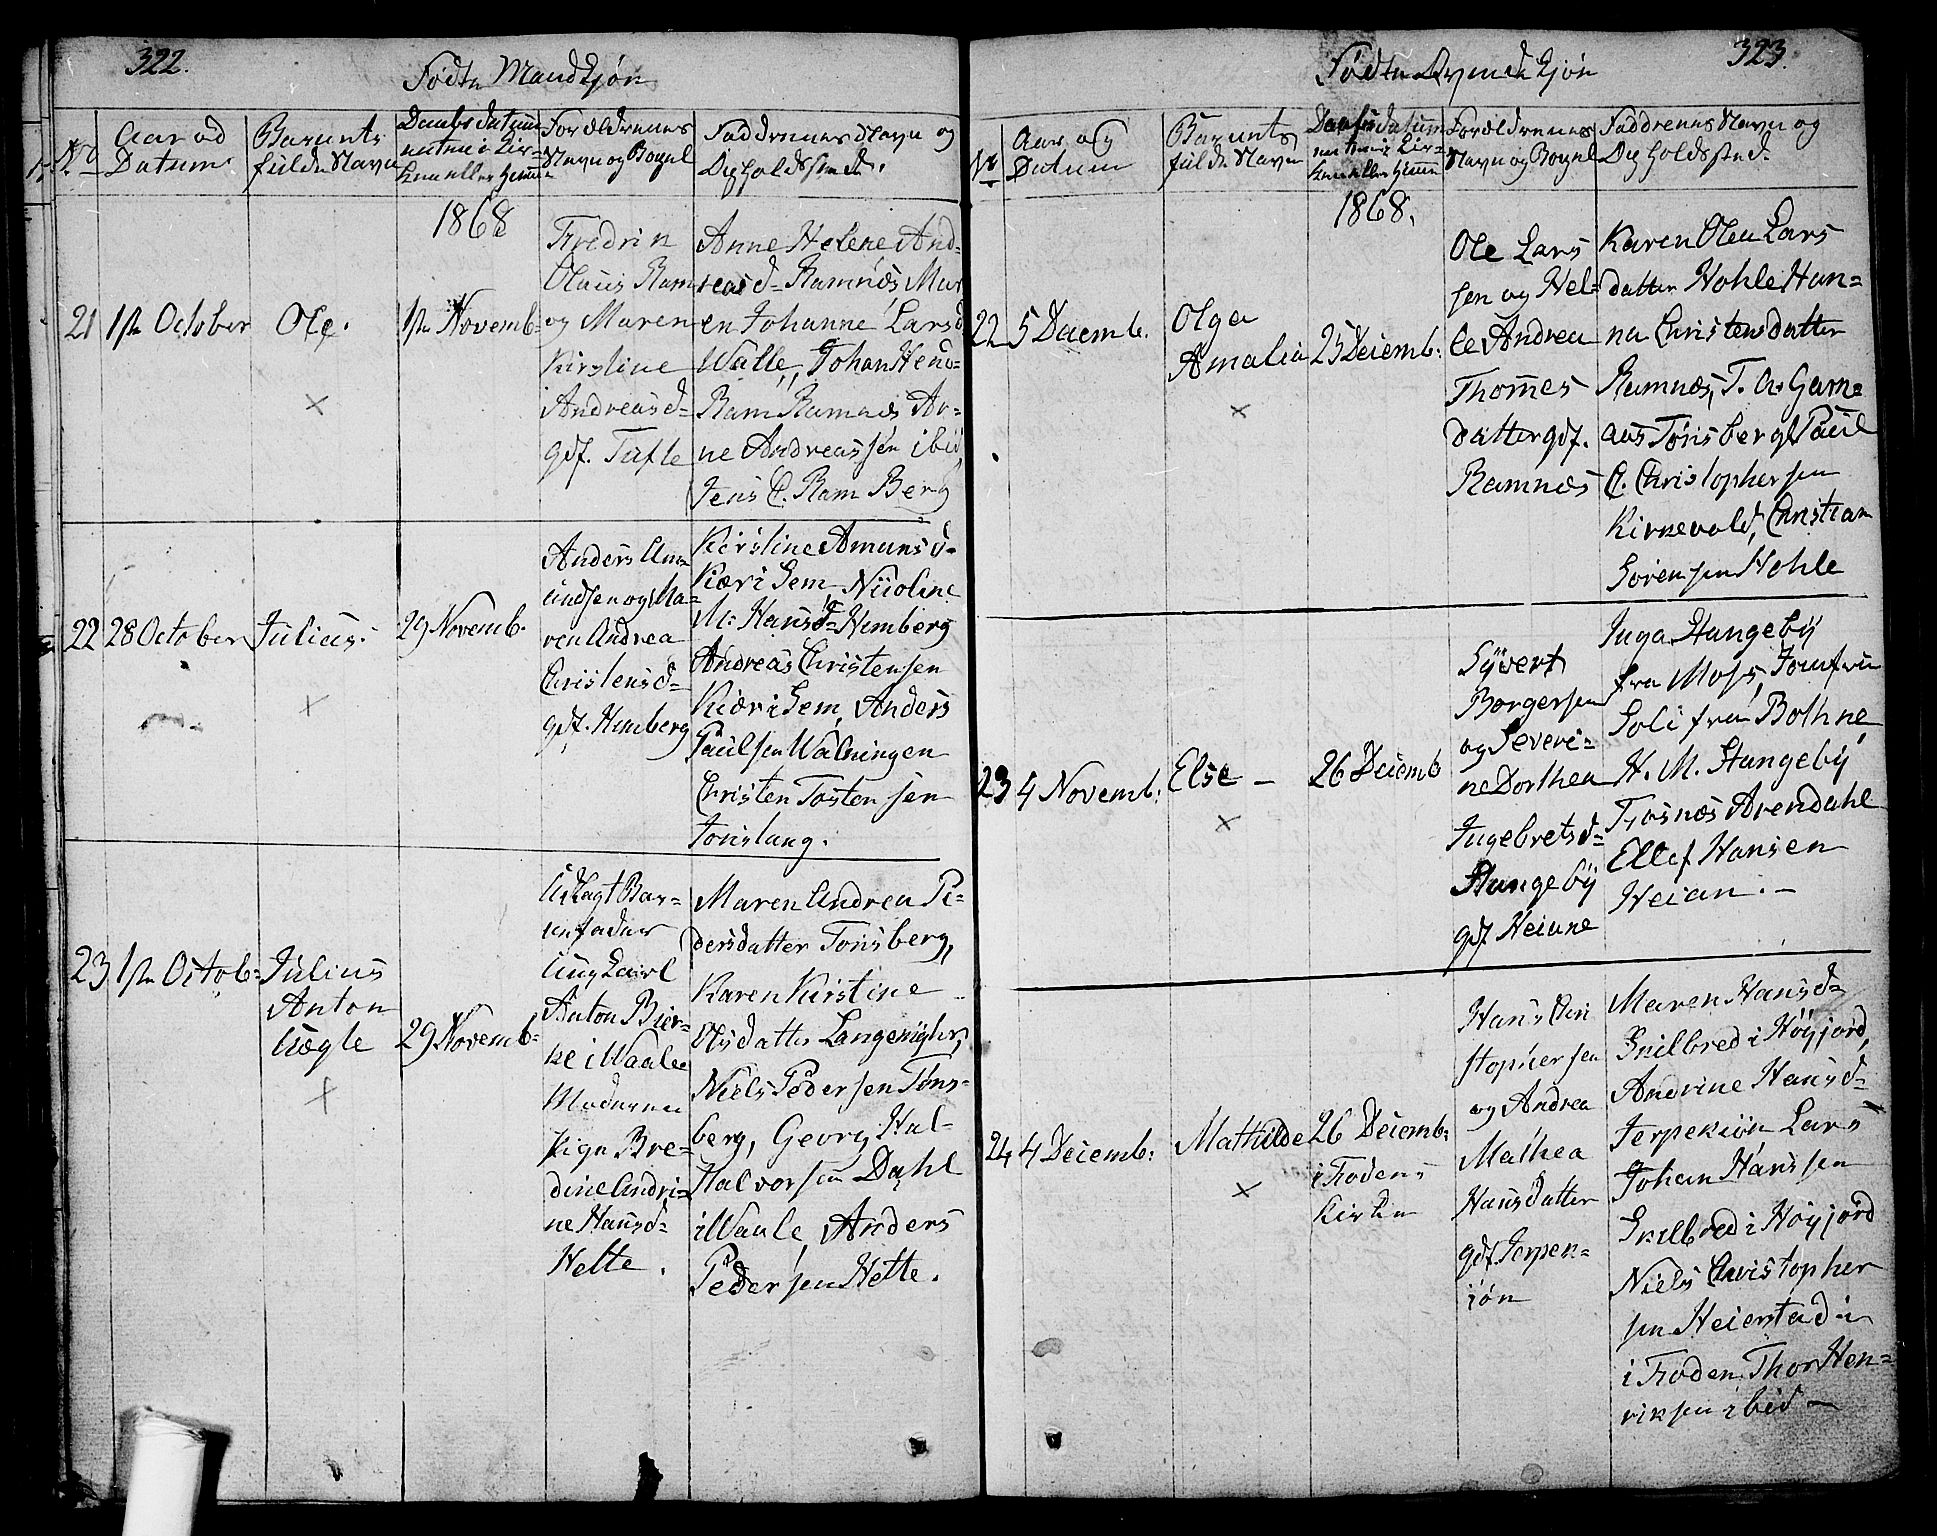 322.
Födte Mandkjön
No
Aar og
Datum
Barnets
fulde Navn
Daabsdatum
enten i Kir-
ken eller hjemme
Forældrenes
Navn og Bopæl
Faddrenes Navn og
Opholdssted.
1868
21
1ste October
Ole.
1ste Novemb.
Fredrik
Olaus Ram
og Maren
Kirstine
Andreasd-
gdf. Tufte
Anne Helene And-
reasd- Ramnæs Mar
en Johanne Larsd
Walle, Johan Hend-
Ram Ramnæs Ar-
ne Andreassen ibid
Jens C. Ram Berg
22
28 October
Julius.
29 Novemb.
Anders Am-
undsen og Ma-
ren Andrea
Christensd-
gdf. Himberg
Kirstine Amunsd-
Kiær i Sem, Nicoline
M. Hansd- Himberg
Andreas Christensen
Kiær i Sem, Anders
Paulsen Walningen
Christen Tosten sen
Jonslang.
23
1ste Octob-
Julius
Anton
Uægte
29 Novemb-
Udlagt Bar-
nefader
Ung Karl
Anton Bier-
ke i Waale
Moderen
Pige Bre-
dine Andri-
ne Hansd-
Helte.
Maren Andrea Pe-
dersdatter Tønsberg,
Karen Kirstine
Olsdatter
Niels Pedersen Tøns-
berg, Georg Hal-
Halvorsen Dahl
i Waale, Anders
Pedersen Helte.
323.
Födte Qvindekjön
No
Aar og
Datum
Barnets
fulde Navn
Daabsdatum
enten i Kir-
ken eller hjemme
Forældrenes
Navn og Bopæl
Faddrenes Navn og
Opholdssted.
1868.
22
5 Decemb.
Olga
Amalia
25 Decemb.
Ole Lars
sen og Hel-
le Andrea
Thomes
datter gdf.
Ramnæs
Karen Olea Lars
datter Hohle Han-
na Christensdatter
Ramnæs, T. A. Garn
aas Tönsberg Paul
C. Christophersen
Kirkevold, Christian
Sörensen Hohle
23
4 Novemb.
Else -
26 Decemb
Syvert
Borgersen
og Severi-
ne Dorthea
Ingebretsd-
Stangeby
gdf Heiane
Inga Stangeby
fra Moss, Jomfru
Soli fra Bothne,
H. M. Stangeby
Trosnæs Arendahl
Ellef Hansen
Heian. -
24
4 Decemb.
Mathilde
26 Decemb.
i Fodens
Kirke
Hans Chri
stophersen
og Andrea
Mathea
Hansdatter
gdf. Jerpek-
jön
Maren Hansd-
Snilbred i Höyjord,
Andrine Hansd-
Jerpekiön Lars
Johan Hanssen
Snilbred i Höyjord
Niels Christopher
sen Heierstad
i Foden Thor Hen-
riksen ibid -